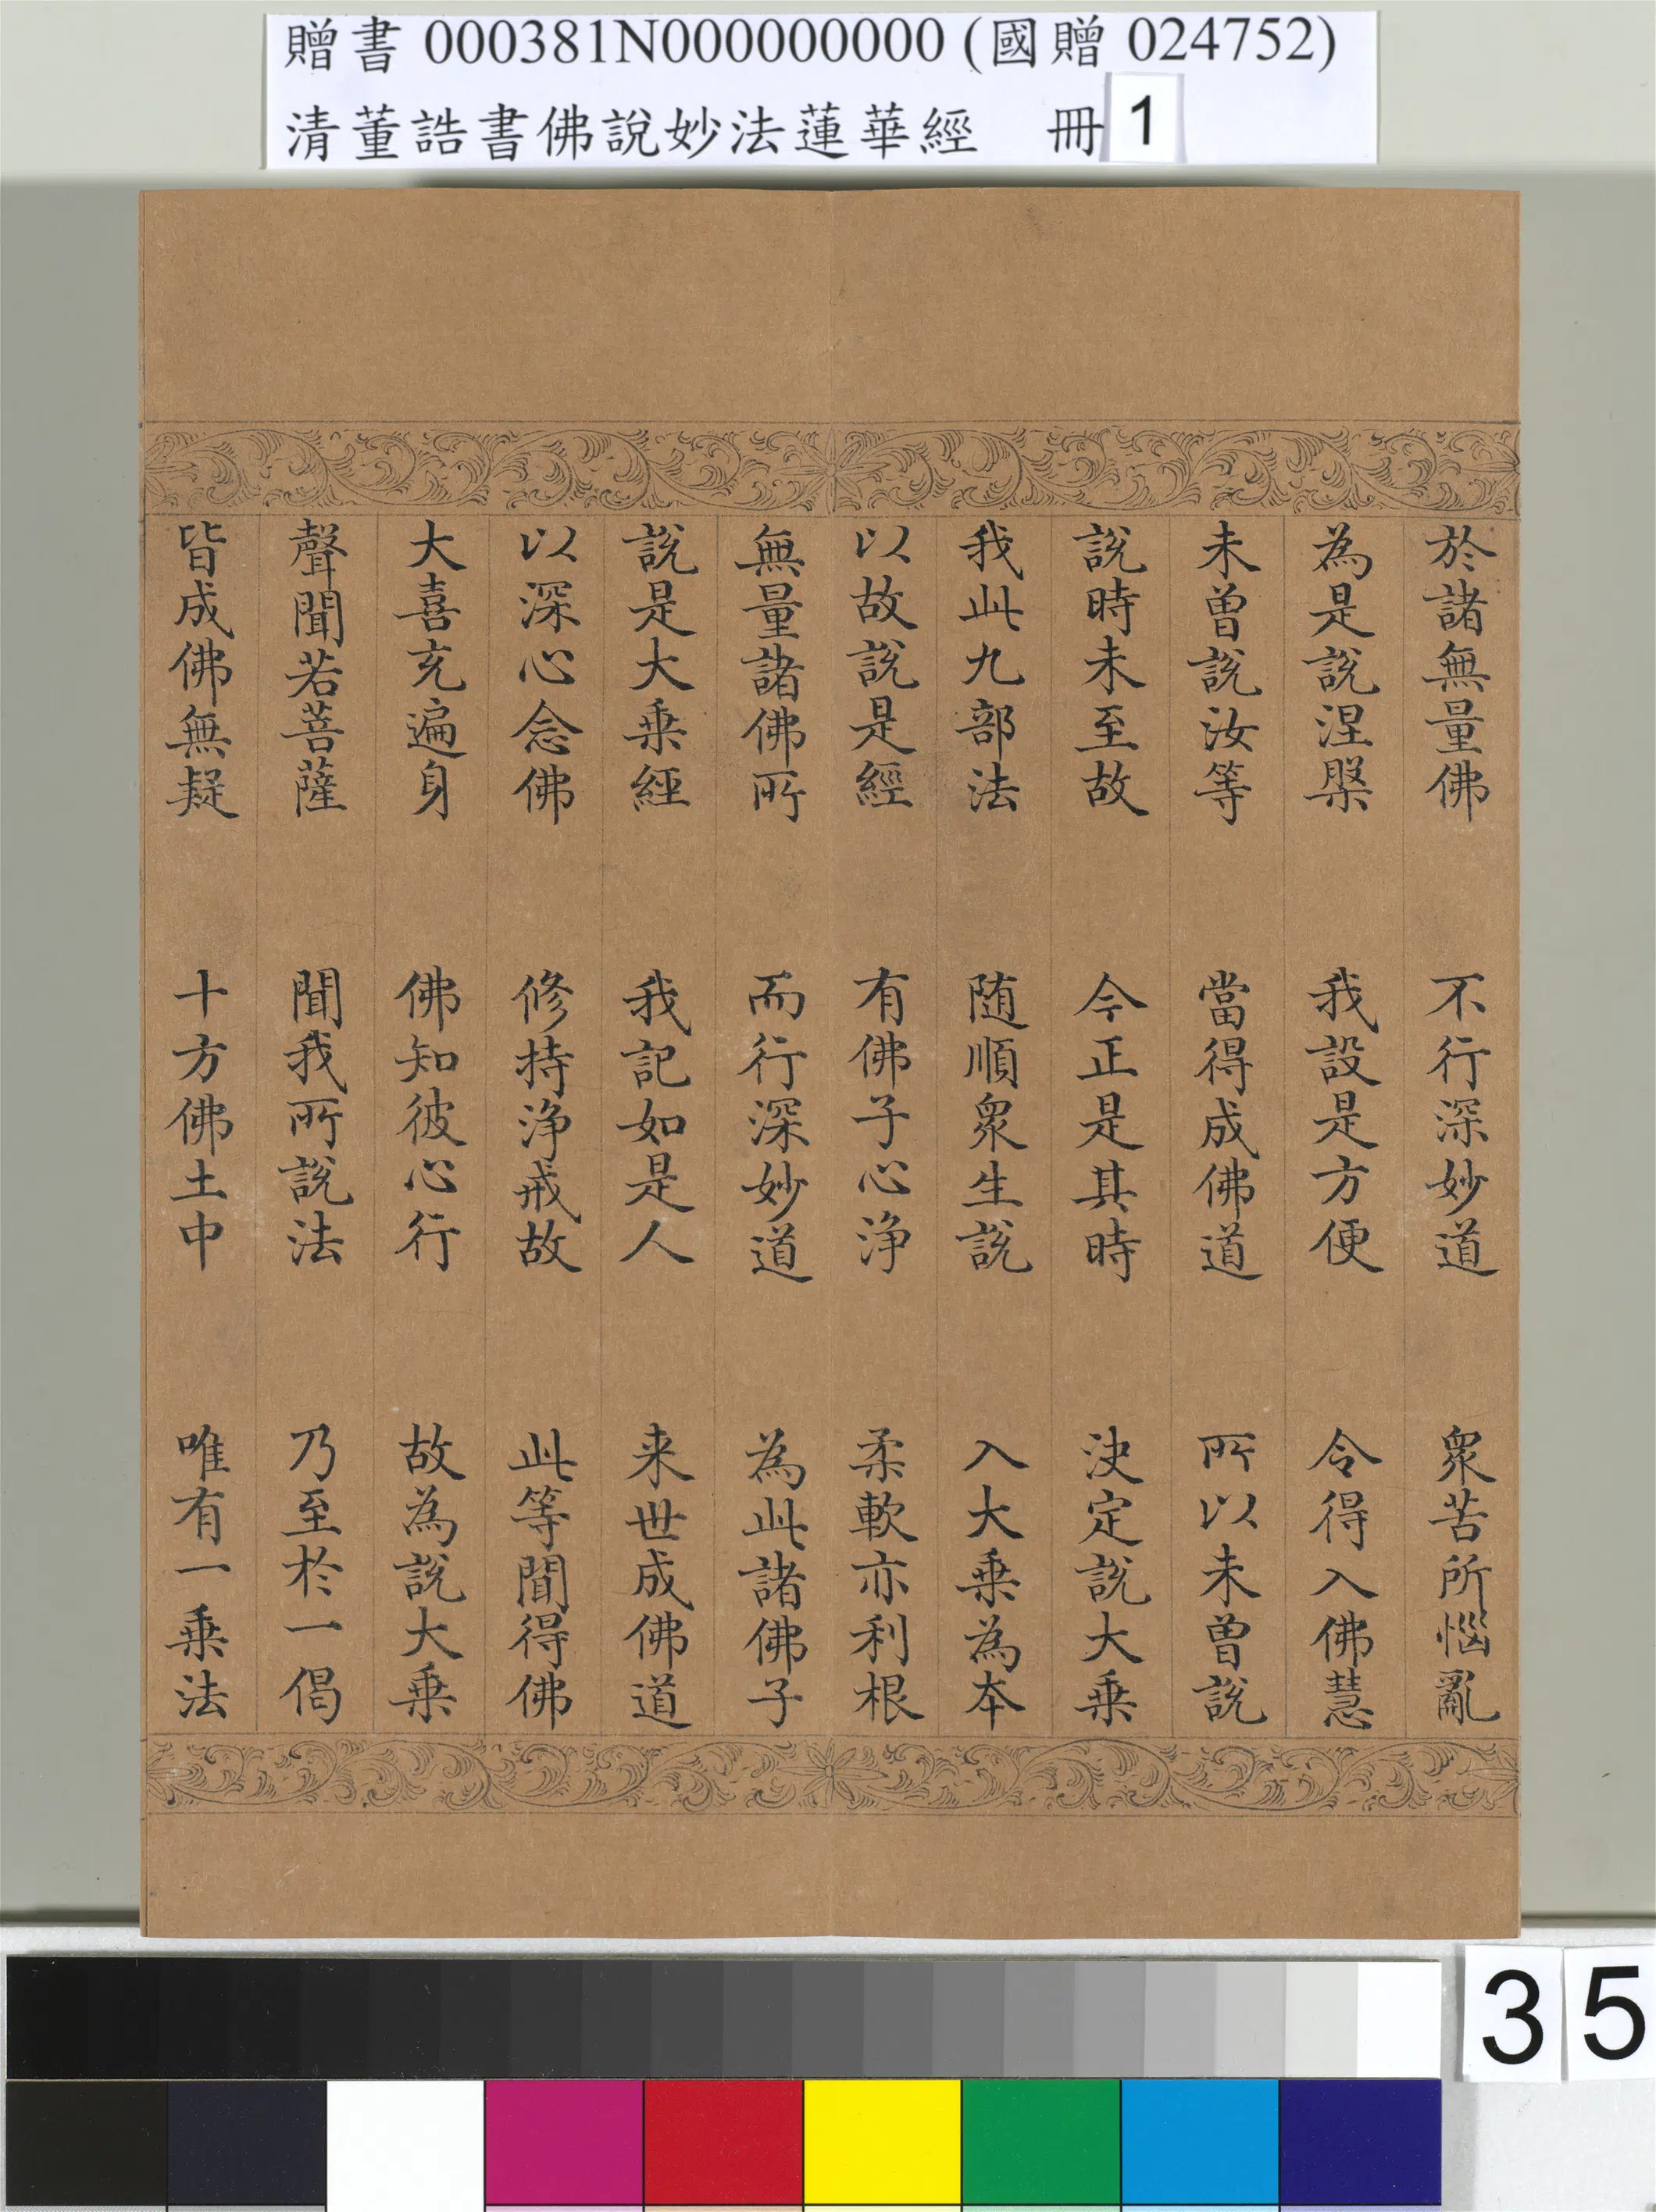 贈書 000381N000000000 (國贈 024752)
清董誥書佛說妙法蓮華經 冊 1
於諸無量佛 不行深妙道 衆苦所惱亂
為是說涅槃 我設是方便 令得入佛慧
未曾說汝等 當得成佛道 所以未曾說
說時未至故 今正是其時 決定說大乗
我此九部法 随順衆生說 入大乗為本
以故說是經 有佛子心浄 柔軟亦利根
無量諸佛所 而行深妙道 為此諸佛子
說是大乗經 我記如是人 来世成佛道
以深心念佛 修持浄戒故 此等聞得佛
大喜充遍身 佛知彼心行 故為說大乗
聲聞若菩薩 聞我所說法 乃至於一偈
皆成佛無疑 十方佛土中 唯有一乗法
35